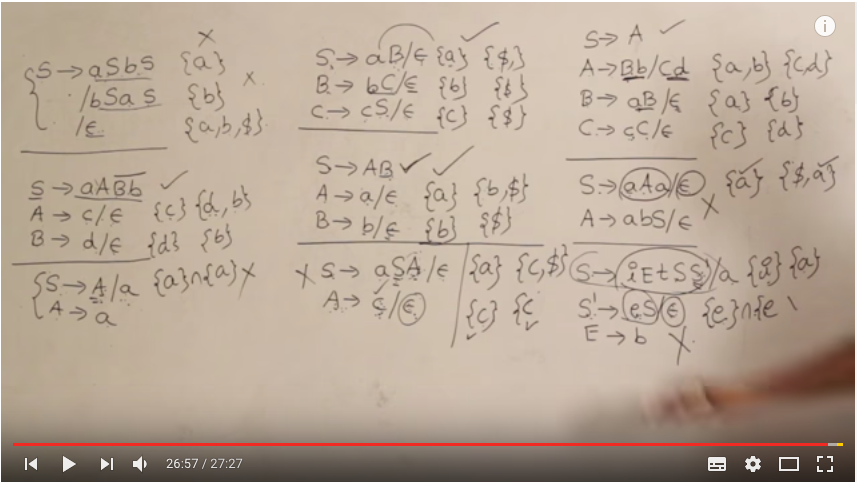 S → aSbS {a}
/bSaS {b}
/ϵ {a,b,$}
S → aABb
A → c/ϵ {c} {d,b}
B → d/ϵ {d} {b}
S → A/a {a}∩{a}
A → a
S → aB/ϵ {a} {$,}
B → bC/ϵ {b} {$}
C → cS/ϵ {c} {$}
S → AB
A → a/ϵ {a} {b,$}
B → b/ϵ {b} {$}
S → aSA/ϵ {a} {c,$}
A → c/ϵ {c} {c
S → A
A → Bb/Cd {a,b} {c,d}
B → aB/ϵ {a} {b}
C → cC/ϵ {c} {d}
S → aAa/ϵ {a} {$,a}
A → abS/ϵ
S → iEtSS'/a {i} {a}
S' → eS/ϵ {e}∩{e
E → b
26:57 / 27:27